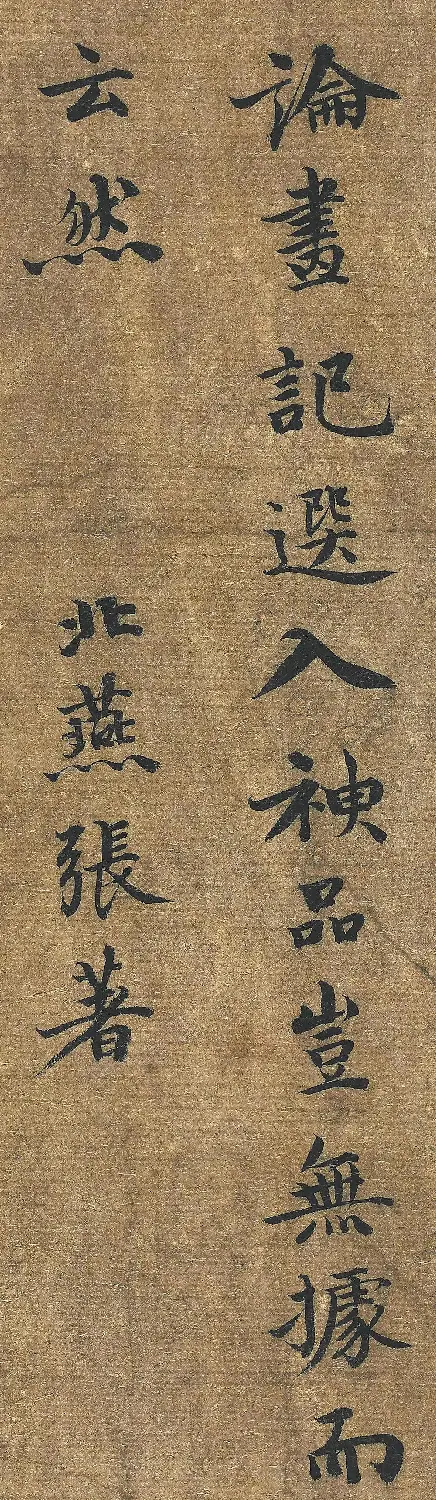 論畫記選入神品豈無據而
云然
北燕張著